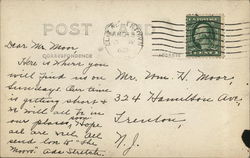 POST CARD
CORRESPONDENCE
ADDRESS
Dear Mr Moon
Here is where you
will find us on
Sundays Our time
is getting short &
will all be in
our places soon, Hope
all are well All
send love to "the
Moons". Ada Stretch.
Mr. Wm. H. Moor,
324 Hamilton Ave,
Trenton
N.J.